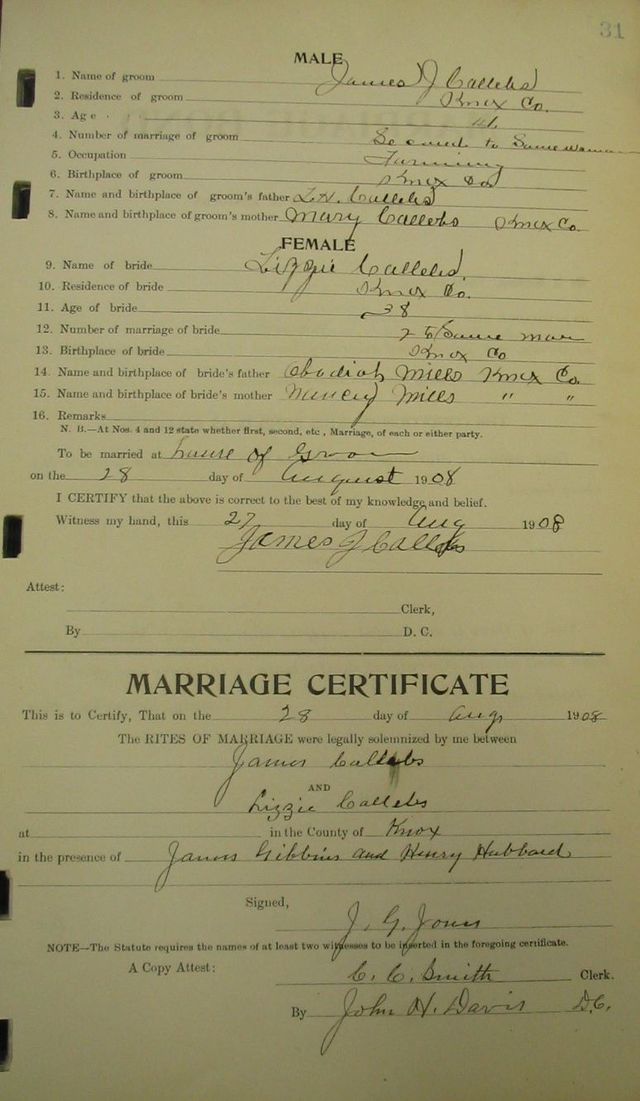 31
MALE
1. Name of groom James J Callebs
2. Residence of groom Knox Co.
3. Age
4. Number of marriage of groom Second to Same woman
5. Occupation Farming
6. Birthplace of groom Knox Co
7. Name and birthplace of groom's father L.H. Callebs
8. Name and birthplace of groom's mother Mary Callebs Knox Co
FEMALE
9. Name of bride Lizzie Callebs.
10. Residence of bride Knox Co.
11. Age of bride 38
12. Number of marriage of bride 2 to Same man
13. Birthplace of bride Knox Co
14. Name and birthplace of bride's father Obadiah Mills Knox Co
15. Name and birthplace of bride's mother Mills " "
16. Remarks
N. B.—At Nos. 4 and 12 state whether first, second, etc , Marriage, of each or either party.
To be married at house of Groom
on the 28 day of August 1908
I CERTIFY that the above is correct to the best of my knowledge and belief.
Witness my hand, this 27 day of Aug 1908
James J Callebs
Attest:
Clerk,
By D. C.
MARRIAGE CERTIFICATE
This is to Certify, That on the 28 day of Aug 1908
The RITES OF MARRIAGE were legally solemnized by me between
James Callebs
AND
Lizzie Callebs
at in the County of Knox
in the presence of James Gibbins and Henry Hubbard
Signed,
J. G. Jones
NOTE—The Statute requires the names of at least two witnesses to be inserted in the foregoing certificate.
A Copy Attest: C. C. Smith Clerk.
By John H. Davis D.C.